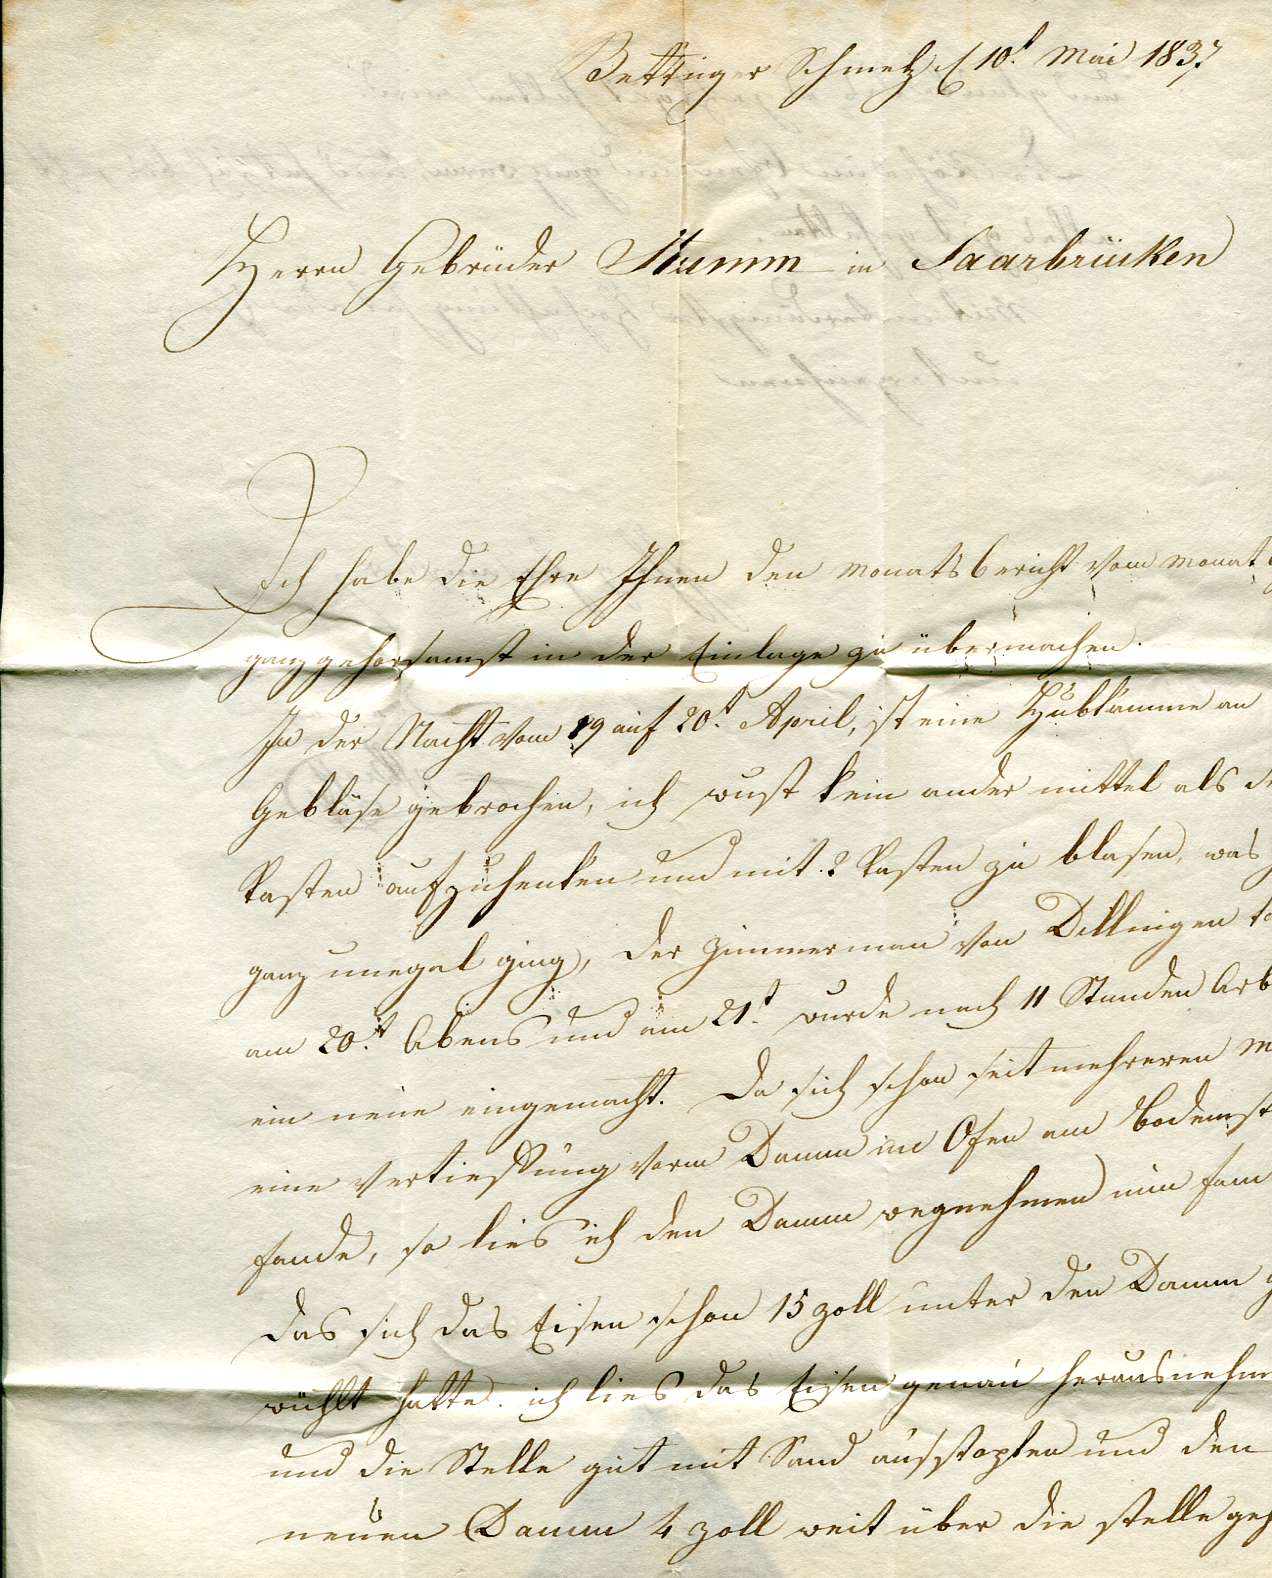 Bettinger Schmelz d 10t. Mai 1837
Herrn Gebrüder Stumm in Saarbrücken
Ich habe die Ehre Ihnen den Monatsbericht vom Monat
ganz gehorsamst in der Einlage zu übermachen.
In der Nacht vom 19 auf 20t. April, ist eine Hubkämme an
Gebläse gebrochen, ich wust kein ander mittel als
Kasten aufzuhenken und mit 2 Kasten zu blasen, was
ganz unegal ging, der Zimmerman von Dillingen
am 20t. Abens und am 21t. wurde nach 11 Stunden Arb
ein neue eingemacht. Da sich schon seit mehreren M
eine Vertieffung vorm Damm im Ofen am Bodenst
fande, so lies ich den Damm wegnehmen nun fan
das sich das Eisen schon 15 Zoll unter den Damm g
wühlt hatte. ich lies das Eisen genau herausnehm
und die Stelle gut mit Sand ausstopfen und den
neuen Damm 4 Zoll weit über die stelle geh